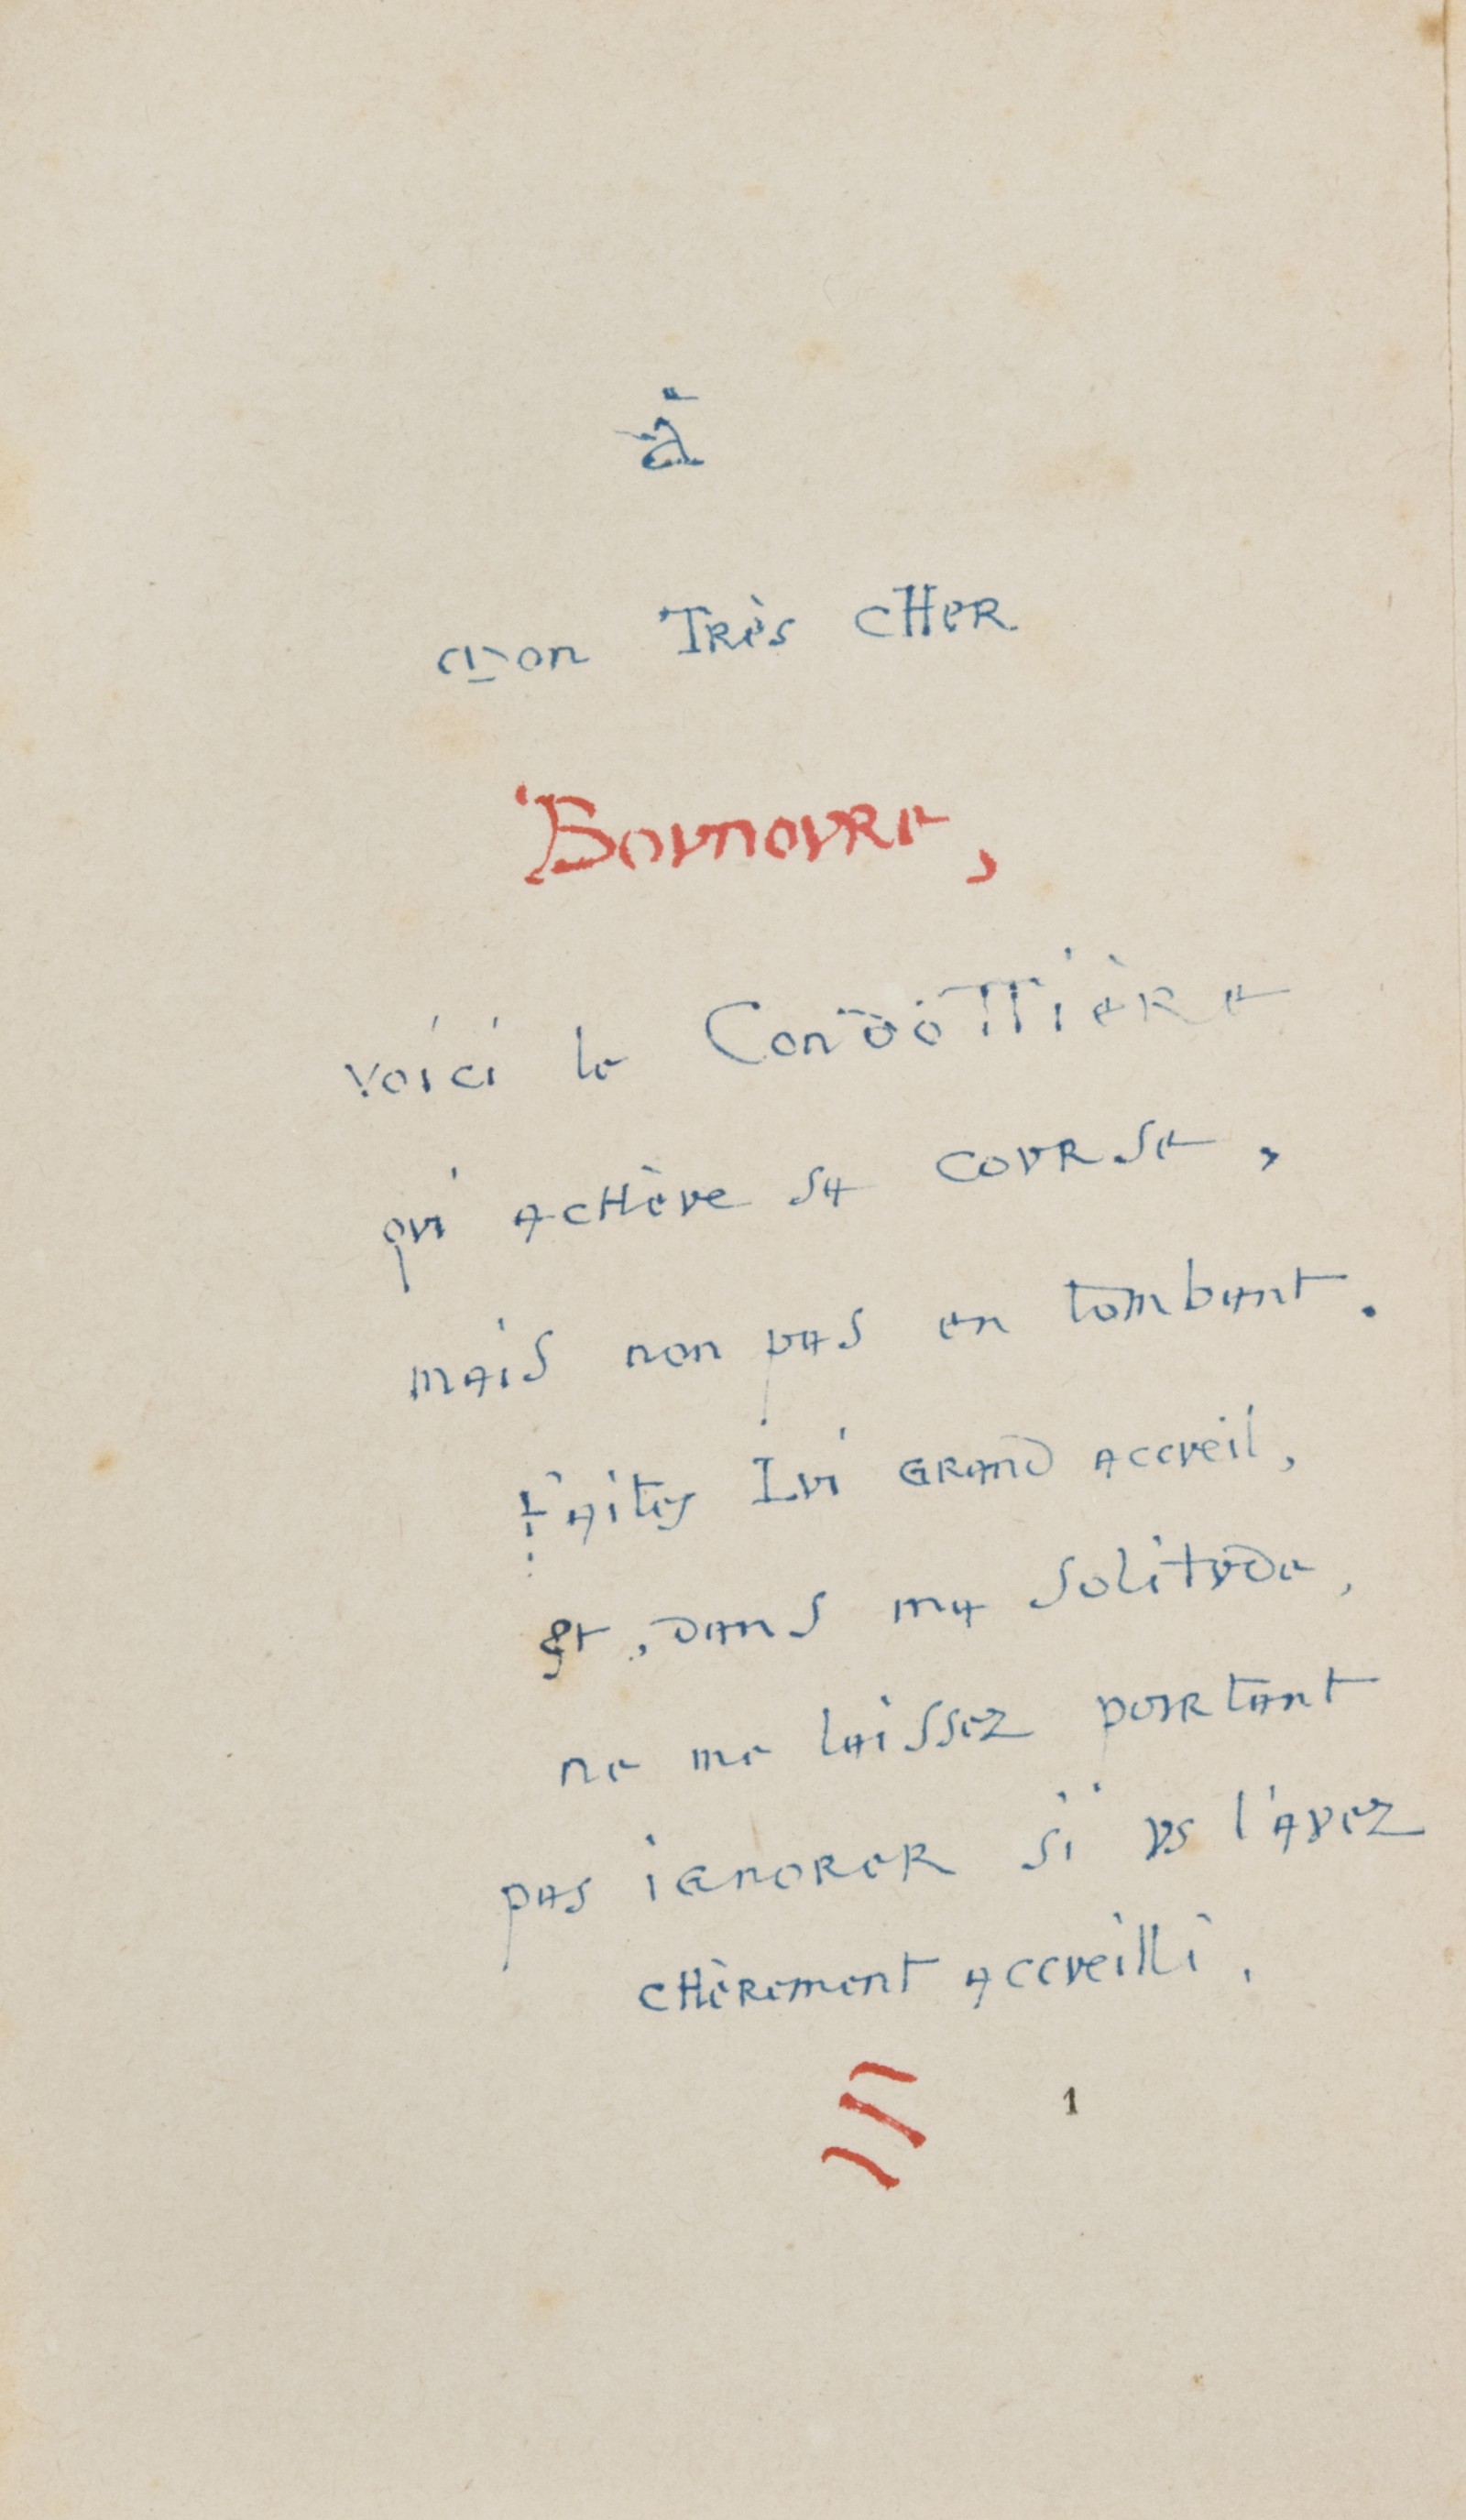 à
mon Très cHer
Bounoure,
voici le Condottière
qui achève sa course,
mais non pas en tombant.
Faites Lui grand accueil,
Et, dans ma solitude,
ne me laissez pourtant
pas ignorer si vs l'avez
chèrement accueilli.
1